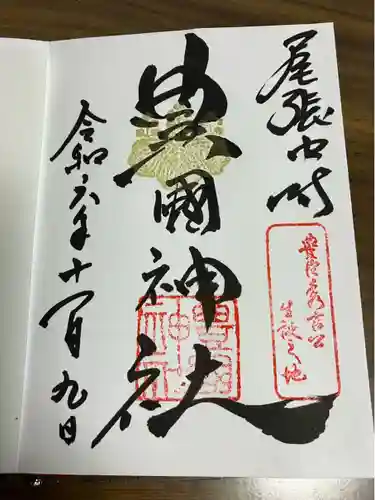 尾張中村
豊臣秀吉公
生誕之地
豊國神社
令和六年十一月九日